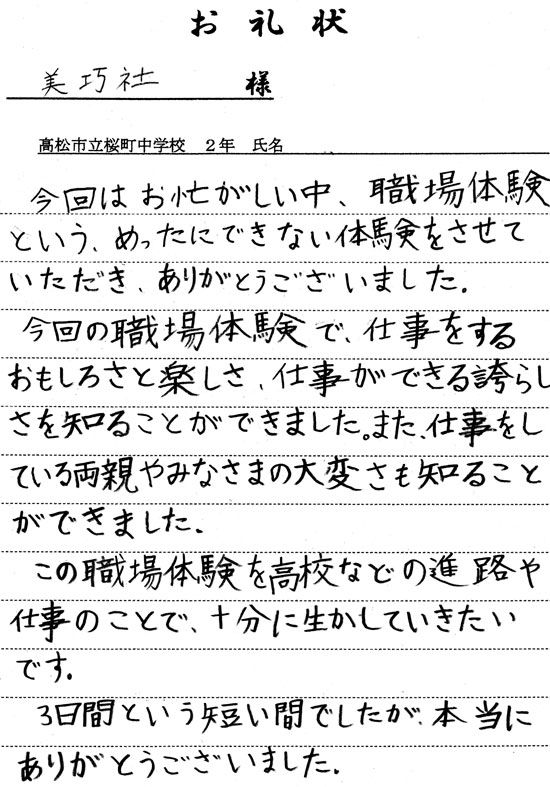 お礼状
美巧社 様
高松市立桜町中学校 2年 氏名
今回はお忙がしい中、職場体験
という、めったにできない体験をさせて
いただき、ありがとうございました。
今回の職場体験で、仕事をする
おもしろさと楽しさ、仕事ができる誇らし
さを知ることができました。また、仕事をし
ている両親やみなさまの大変さも知ること
ができました。
この職場体験を高校などの進路や
仕事のことで、十分に生かしていきたい
です。
3日間という短い間でしたが、本当に
ありがとうございました。